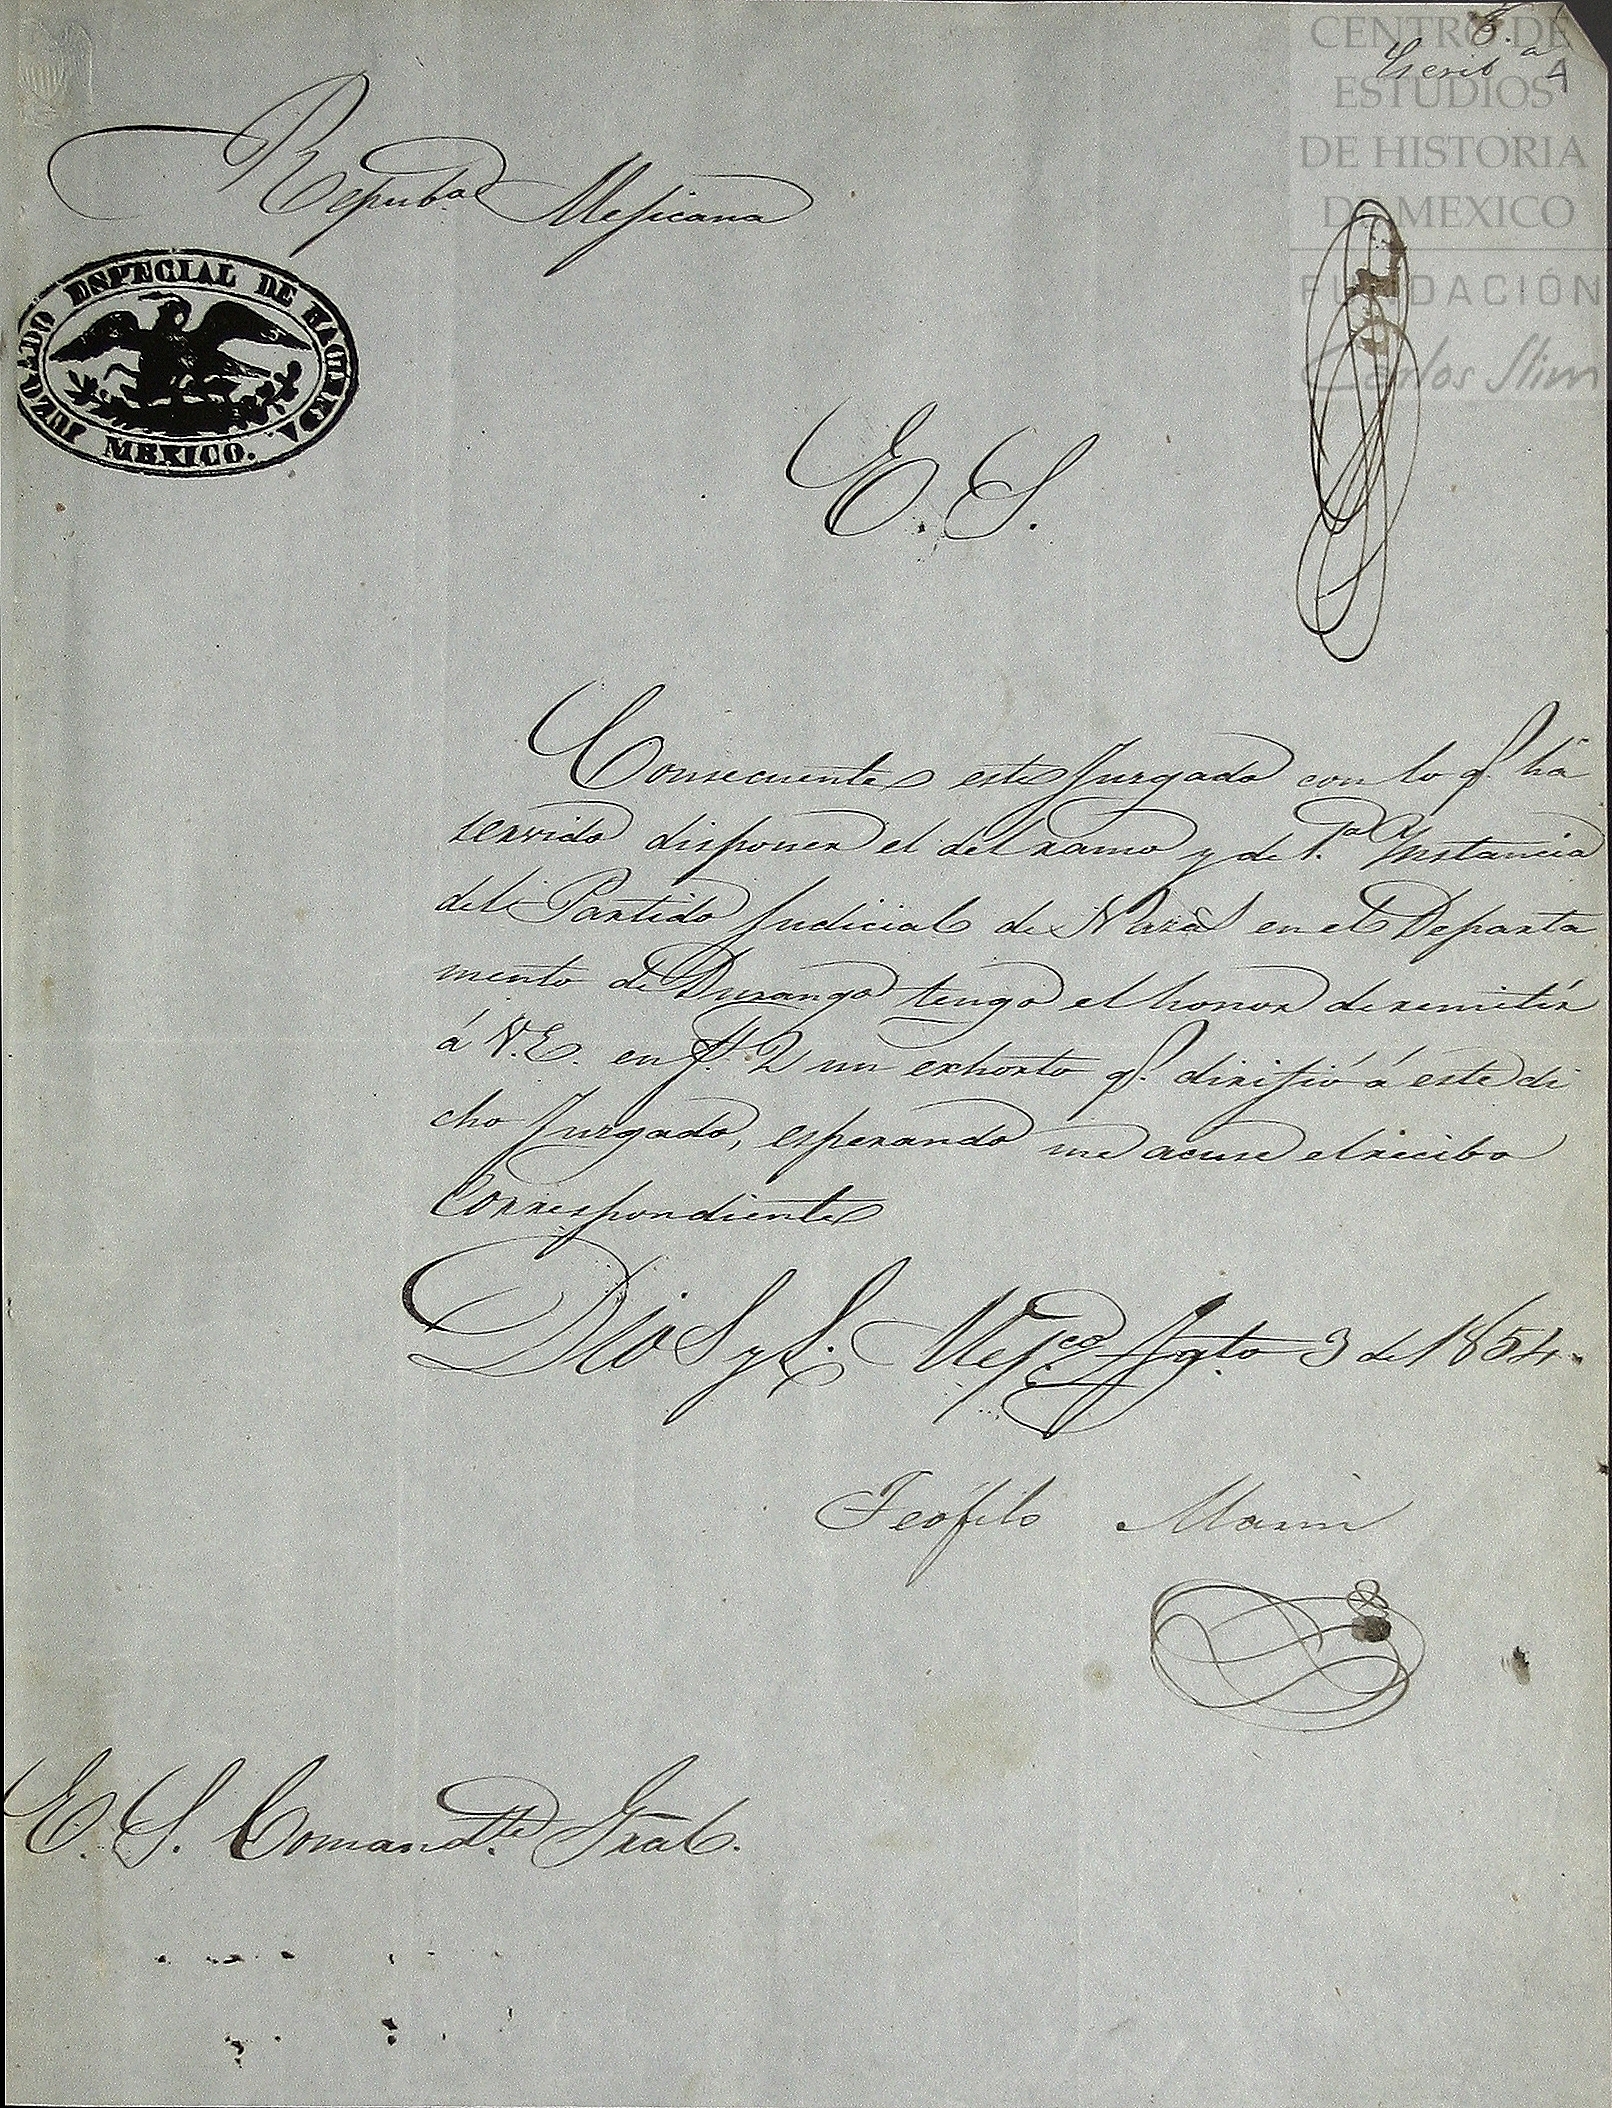 CENTRO DE
ESTUDIOS
DE HISTORIA
DE MEXICO
FUNDACIÓN
Carlos Slim
4
Repubca Mejicana
JUZGADO ESPECIAL DE HACIENDA
MEXICO.
E. S.
Consecuente este Juzgado con lo q. há
servido disponer el del ramo y de 1.a Instancia
del Partido Judicial de Nazas en el Departa
mento de Durango tengo el honor de remitir
á V.E. en f.s 2 un exhorto q. dirijió á este di
cho Juzgado, esperando me acuse el recibo
Correspondiente
Dios y L. Mejco Agto 3 de 1854.
Teófilo Marin
E. S. Comandte Gral.